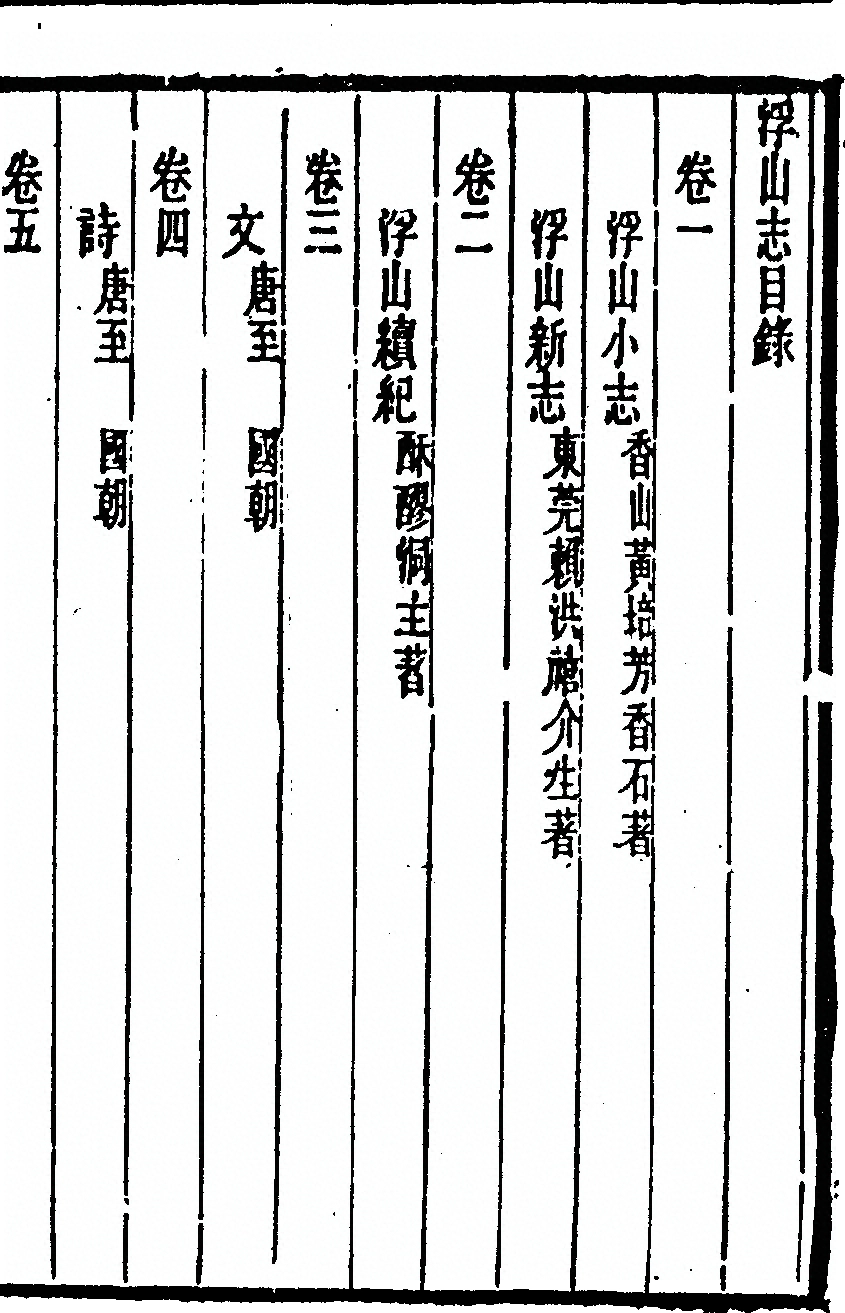 浮山志目錄
卷一
浮山小志香山黃培芳香石著
浮山新志東莞賴洪禧介生著
卷二
浮山續紀酥醪洞主著
卷三
文唐至　國朝
卷四
詩唐至　國朝
卷五